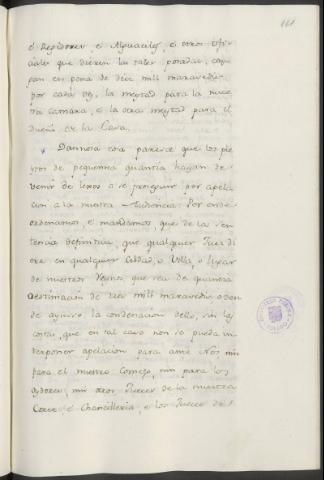 161
é Regidores, é Alguaciles, é otros ofi-
ciales que dieren las tales posadas, cay-
gan en pena de diez mill maravedis
por cada vez, la meytad para la nues-
tra camara, é la otra meytad para el
dueño de la Casa.
Dannosa cosa parece que los pley-
tos de pequenna quantia hayan de
venir de lexos a se proseguir por apela-
cion a la nuestra Audiencia: Por ende
ordenamos, é mandamos que de la sen-
tencia definitiva, que qualquier Juez di-
ere en qualquier Cibdad, o Villa, o Lugar
de nuestros Reynos que sea de quantia
o estimacion de tres mill maravedis, o den-
de ayuso la condenacion dello, sin las
costas, que en tal caso non se pueda in-
terponer apelacion para ante Nos, nin
para el nuestro Consejo, nin para los
oydores, nin otros Jueces de la nuestra
Corte, é Chancilleria, é los Jueces de